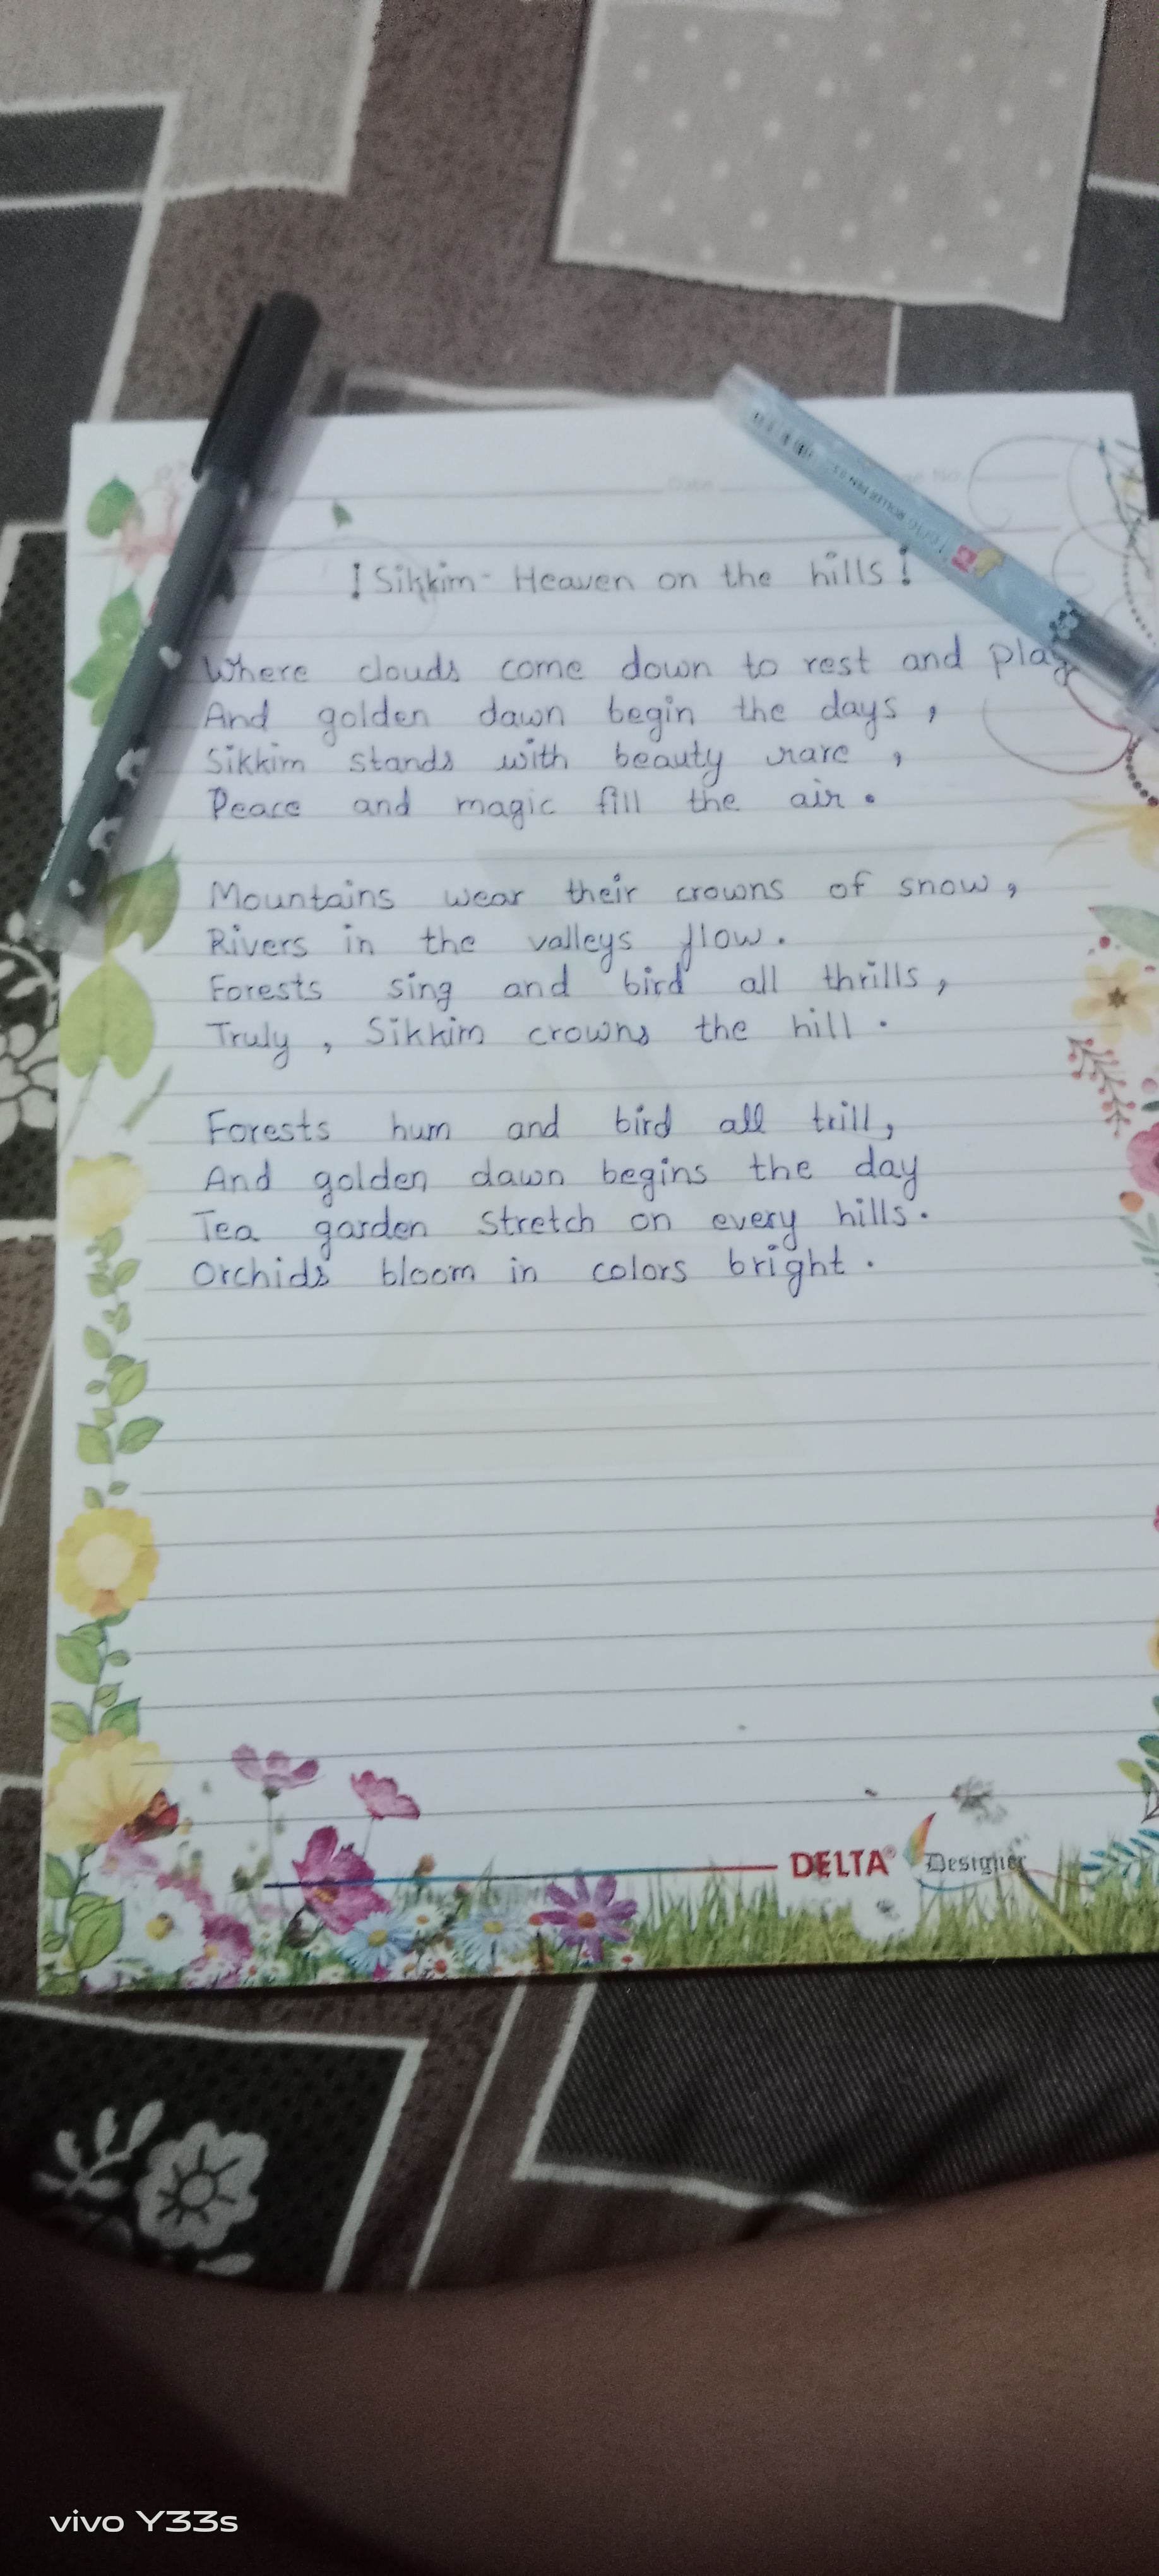 Date
! Sikkim - Heaven on the hills !
Where clouds come down to rest and play
And golden dawn begin the days ,
Sikkim stands with beauty rare ,
Peace and magic fill the air .
Mountains wear their crowns of snow ,
Rivers in the valleys flow .
Forests sing and bird all thrills ,
Truly , Sikkim crowns the hill .
Forests hum and bird all trill ,
And golden dawn begins the day
Tea garden stretch on every hills .
Orchids bloom in colors bright .
DELTA® Designer
vivo Y33s